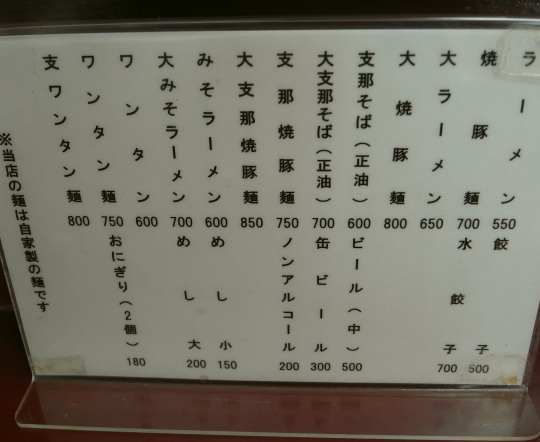 ラーメン 550
焼豚麺 700
大ラーメン 650
大焼豚麺 800
支那そば(正油) 600
大支那そば(正油) 700
支那焼豚麺 750
大支那焼豚麺 850
みそラーメン 600
大みそラーメン 700
ワンタン 600
ワンタン麺 750
支ワンタン麺 800
餃子 500
水餃子 700
ビール(中) 500
缶ビール 300
ノンアルコール 200
めし小 150
めし大 200
おにぎり(2個) 180
※当店の麺は自家製の麺です